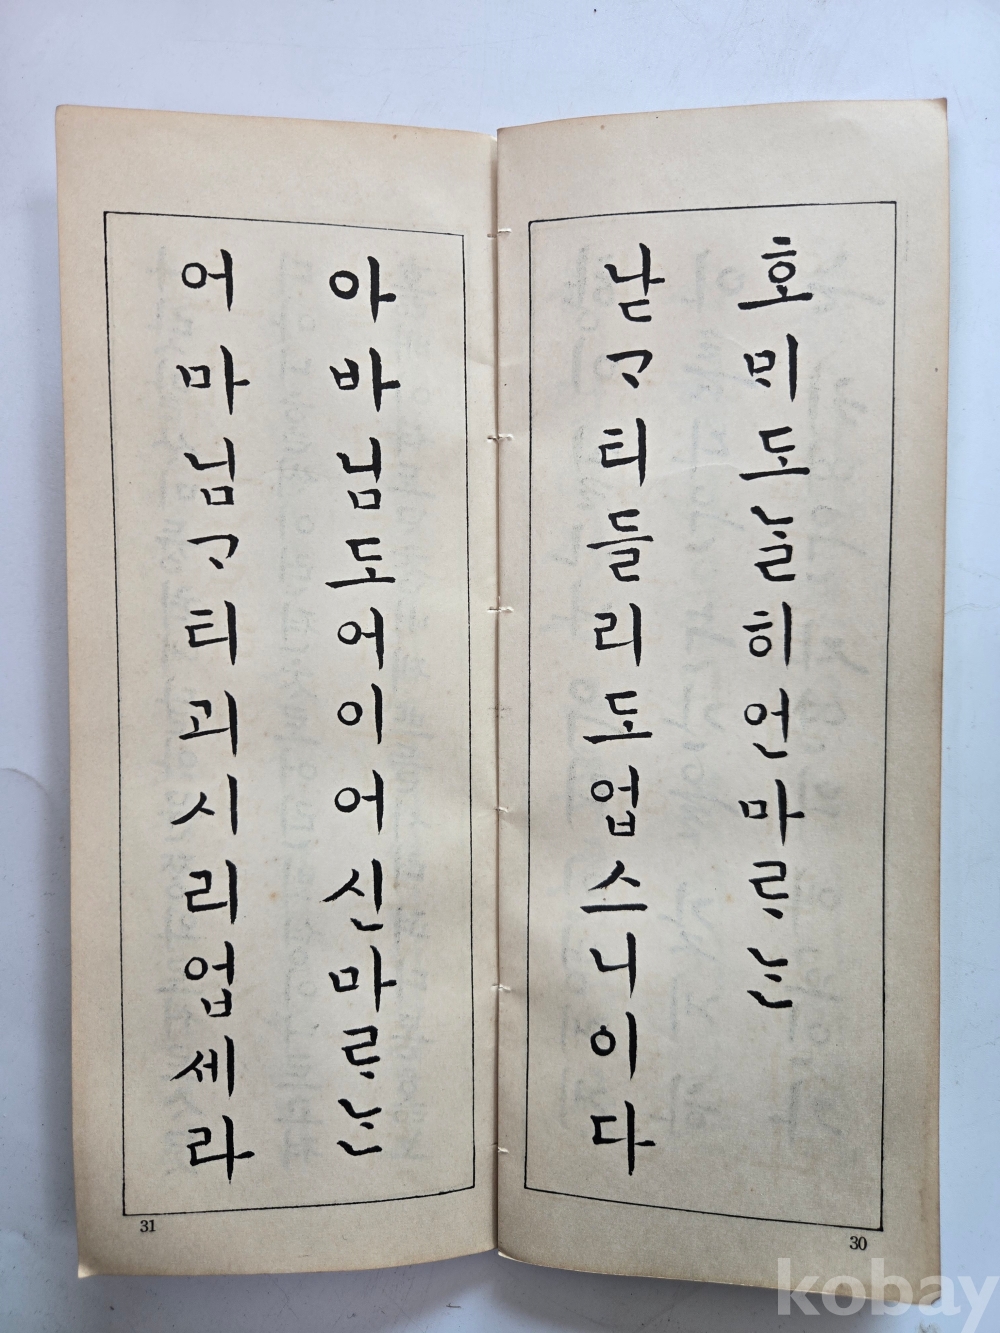 호ᄆᆡ도ᄂᆞᆯ히언마ᄅᆞᄂᆞᆫ
낟ᄀᆞ티들리도업스니이다
30
아바님도어이어신마ᄅᆞᄂᆞᆫ
어마님ᄀᆞ티괴시리업세라
31
kobay